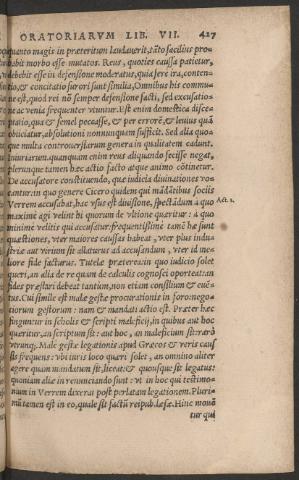 ORATORIARVM LIB. VII. 427
quento magis in præteritum laudaverit, tãto facilius pro
babit morbo esse mutatos. Reus, quoties caussa patietur,
debebit esse in defensione moderatus, quia fere ira, conten-
tio, & concitatio furori sunt similia, Omnibus his commu-
ne est, quod rei nõ semper defensione facti, sed excusatio-
ne ac venia frequenter vtuntur. Est enim domestica disce-
ptatio, qua & semel peccasse, & per errorẽ, & leuius quã
obiiciatur, absolutioni nonnunquam sufficit. Sed alia quo-
que multa controuersiarum genera in qualitatem cadunt.
Iniuriarum. quanquam enim reus aliquando fecisse negat,
plerunque tamen hæc actio facto atque animo cõtinetur.
De accusatore constituendo, quæ iudicia diuinationes vo-
cantur: in quo genere Cicero quidem qui mãdãtibus sociis
Verrem accusabat, hac vsus est diuisione, spectãdum à quo Act 1.
maximè agi velint hi quorum de vltione quæritur: à quo
minime velit is qui accusatur. frequentissimè tamẽ hæ sunt
quæstiones, vter maiores caussas habeat, vter plus indu-
striæ aut virium sit allaturus ad accusandum, vter id me-
liore fide facturus. Tutelæ præterea: in quo iudicio solet
quæri, an alia de re quam de calculis cognosci oporteat: an
fides præstari debeat tantùm, non etiam consilium & euẽ-
tus. Cui simile est malæ gestæ procurationis in foro: nego-
tiorum gestorum: nam & mandati actio est. Præter hæc
finguntur in scholis & scripti maleficij, in quibus aut hoc
quæritur, an scriptum sit: aut hoc, an maleficium sit: rarò
vtrunq;. Malè gestæ legationis apud Græcos & veris caus
sis frequens: vbi iuris loco quæri solet, an omnino aliter
agere quam mandatum sit, liceat: & quousque sit legatus:
quoniam aliæ in renunciando sunt: vt in hoc qui testimo-
nium in Verrem dixerat post perlatam legationem. Pluri-
mũ tamen est in eo, quale sit factũ reipub. læsæ. Hinc mouẽ
tur qui